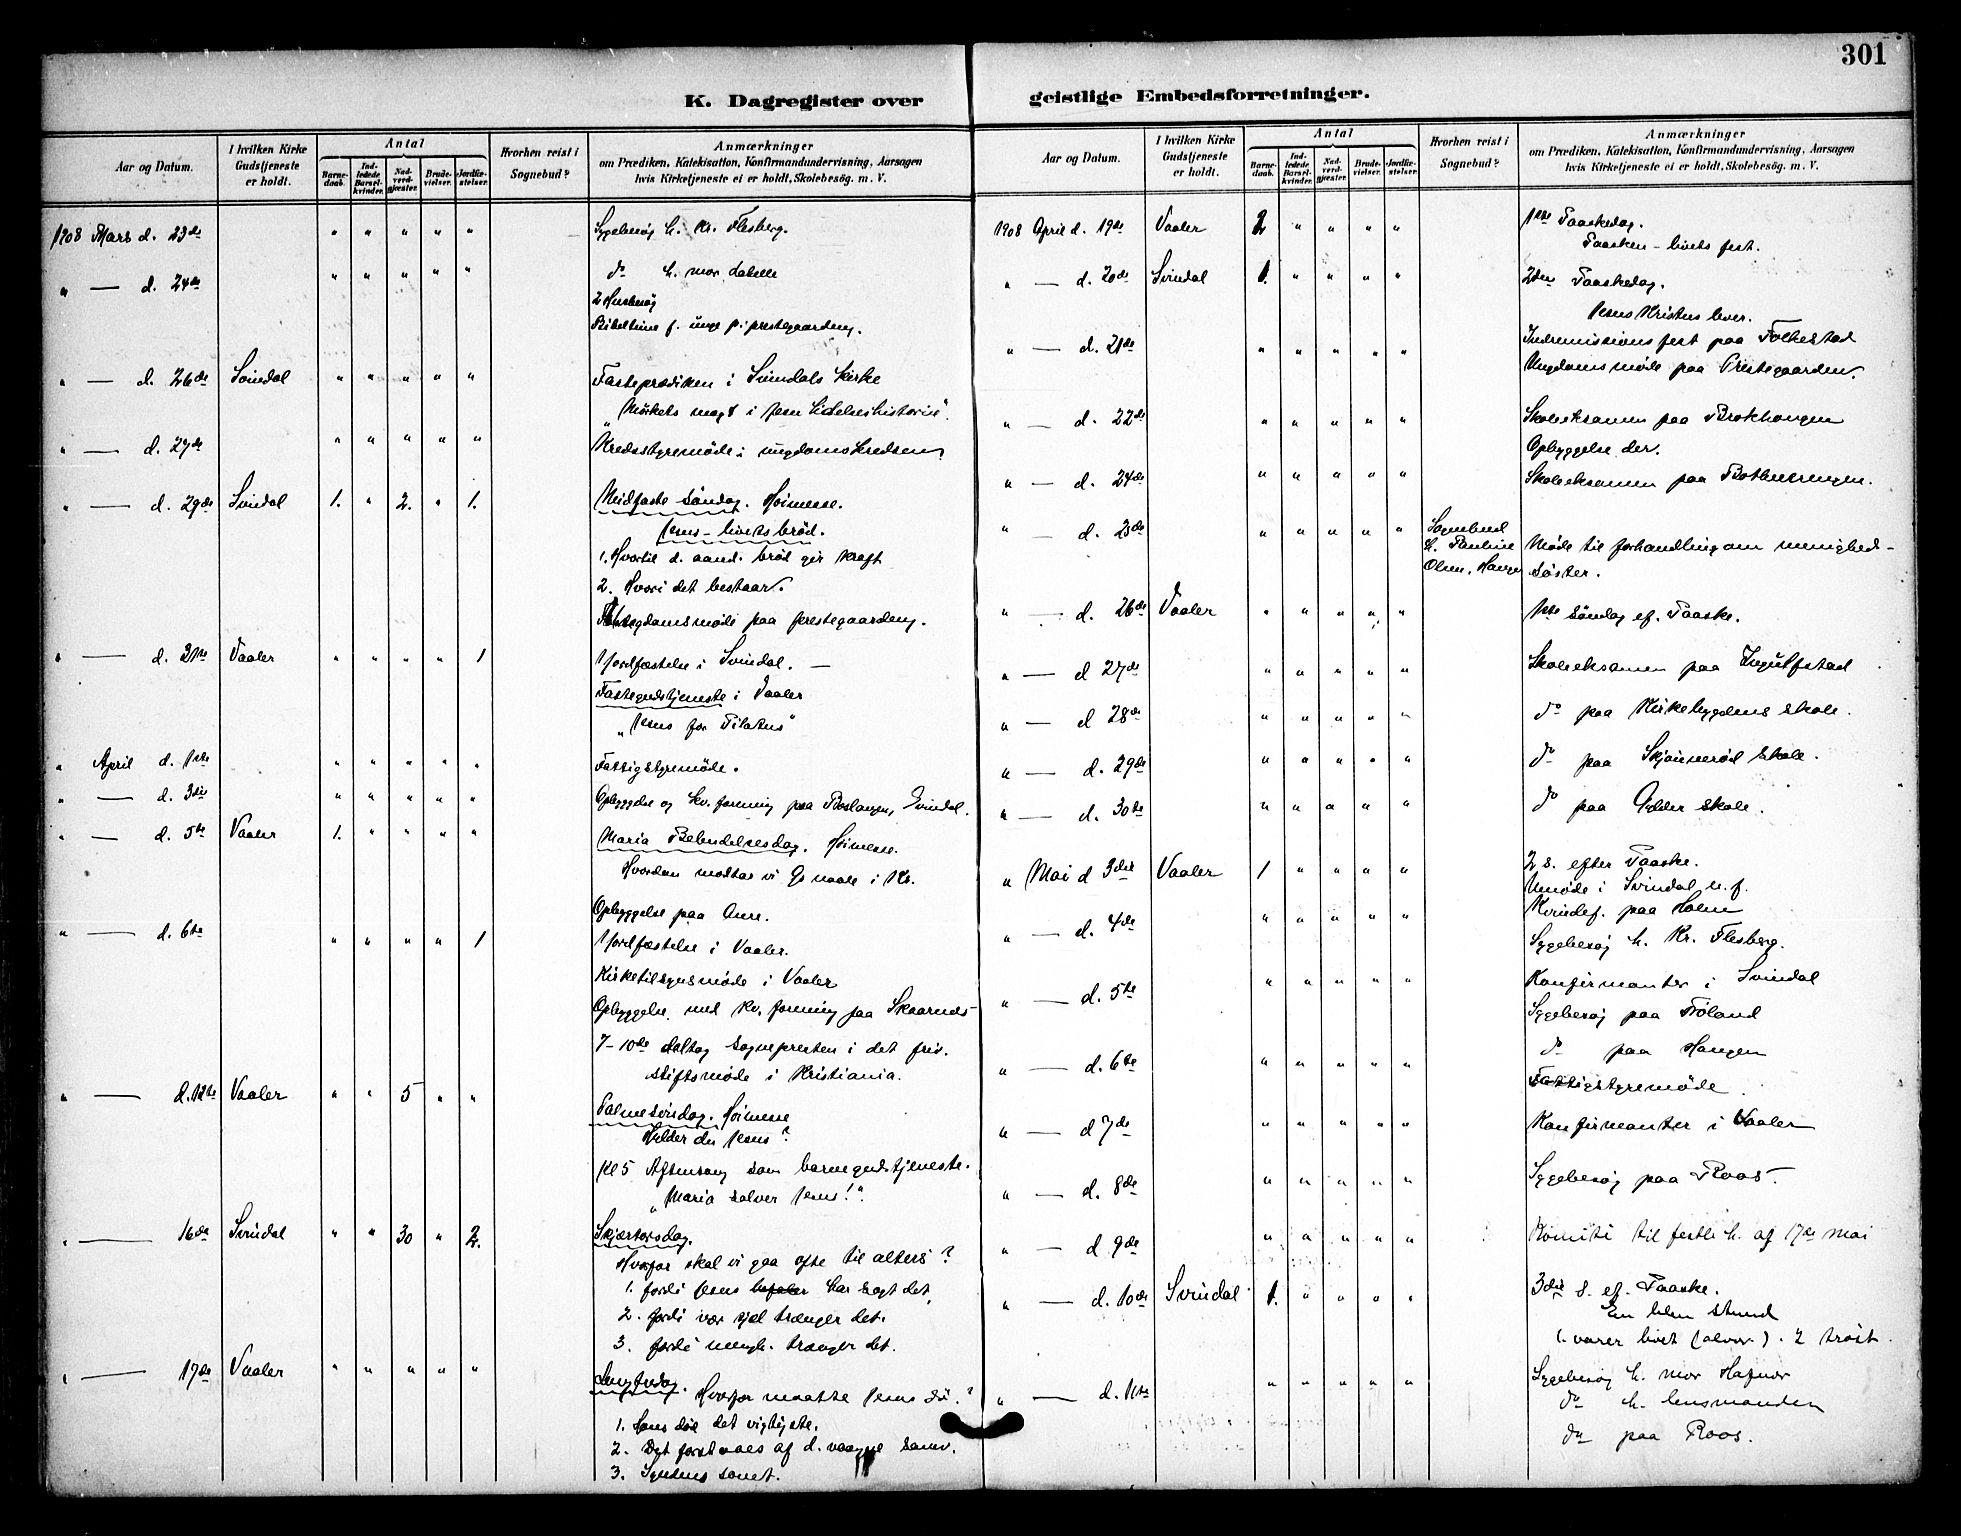 301
K. Dagregister over geistlige Embedsforretninger.
Aar og Datum.
I hvilken Kirke Gudstjeneste er holdt.
Antal
Barnedaab.
Indledede Barselkvinder.
Nadverdgjæster.
Brudevielser.
Jordfæstelser.
Hvorhen reist i Sognebud?
Anmærkninger
om Prædiken, Katekisation, Konfirmandundervisning, Aarsagen
hvis Kirketjeneste ei er holdt, Skolebesøg. m. V.
1908 Mars d. 23de " " " " " Sygebesøg h. Kr. Flesberg.
" — d. 24de " " " " " do h. mor
2 Husbesøg
Bibeltime f. unge p. prestegaarden.
" — d. 26de Svindal " " " " " Fasteprædiken i Svindals kirke
"Mørkets magt i Jesu Lidelseshistorie".
" — d. 27de " " " " " Kredsstyremøde i ungdomskredsen.
" — d. 29de Svindal 1. " 2. " 1. Midfaste søndag. Høimesse.
Jesus – livets brød.
1. Hvortil d. aand. brød gir kraft
2. Hvori det bestaar.
Ungdomsmøde paa prestegaarden.
" — d. 31te Vaaler " " " " 1 1 jordfæstelse i Svindal. —
Fastegudstjeneste i Vaaler
"Jesus for Pilatus"
" April d. 1ste " " " " " Fattigstyremøde.
" — d. 3die " " " " " Opbyggelse og kv. forening paa Svindal.
" — d. 5te Vaaler 1. " " " " Maria Bebudelsesdag. Høimesse.
Hvordan modtar vi Gs naade i Kr.
Opbyggelse paa
" — d. 6te " " " " 1 1 jordfæstelse i Vaaler.
Kirketilsynsmøde i Vaaler
Opbyggelse med kv. forening paa Skaarnes
7–10de deltog sognepresten i det friv.
stiftsmøde i Kristiania.
" — d. 12te Vaaler " " 5 " " Palmesøndag. Høimesse
Hylder du Jesus?
Kl 5 Aftensang som barnegudstjeneste.
"Maria salver Jesus!".
" — 16de Svindal " " 30 " 2. Skjærtorsdag.
Hvorfor skal vi gaa ofte til alters?
1. fordi Jesus befaler har sagt det
2. fordi vor sjel trænger det.
3. fordi mengh. trænger det.
" — 17de Vaaler " " " " " Langfredag. Hvorfor maatte Jesus dø?
1. Hans død det vigtigste.
2. Det forstaaes af d. vaagne samv.
3. Syndens sonet.
Aar og Datum.
I hvilken Kirke Gudstjeneste er holdt.
Antal
Barnedaab.
Indledede Barselkvinder.
Nadverdgjæster.
Brudevielser.
Jordfæstelser.
Hvorhen reist i Sognebud?
Anmærkninger
om Prædiken, Katekisation, Konfirmandundervisning, Aarsagen
hvis Kirketjeneste ei er holdt, Skolebesøg. m. V.
1908 April d. 19de Vaaler 2 " " " " 1ste Paaskedag.
Paasken – livets fest.
" — d. 20de Svindal 1. " " " " 2den Paaskedag.
Jesus Kristus lever.
" — d. 21de " " " " " Indremissionsfest paa Folkestad
Ungdomsmøde paa Prestegaarden.
" — d. 22de " " " " " Skoleeksamen paa Brokhaugen
Opbyggelse der.
" — d. 24de " " " " " Skoleeksamen paa
" — d. 25de " " " " " Sognebud
h. Pauline Møde til forhandling om menighed-
Olsen, Haugen søster.
" — d. 26de Vaaler " " " " " 1ste søndag ef. Paaske.
" — d 27de " " " " " Skoleeksamen paa Ingulfstad
" — d 28de " " " " " do paa Kirkebygdens skole.
" — d. 29de " " " " " do paa Skjønnerød skole.
" — d. 30de " " " " " do paa Gylder skole.
" Mai d 3die Vaaler 1 " " " " 2 s. efter Paaske.
Umøde i Svindal u. f.
" — d. 4de " " " " " Kvindef. paa Holm
Sygebesøg h. Kr. Flesberg.
" — d. 5te " " " " " Konfirmanter i Svindal
Sygebesøg paa Frøland
" — d. 6te " " " " " do paa Haugen
Fattigstyremøde.
" — d 7de " " " " " Konfirmanter i Vaaler
" — d. 8de " " " " " Sygebesøg paa Roos.
" — d 9de " " " " " Komité til festli h. af 17de mai
" — d. 10de Svindal 1. " " " " 3die s. ef. Paaske.
En liden stund
1. varer livet (alvor). 2 trøst.
" — d. 11te " " " " " Sygebesøg h. mor Hafnor
do h. lensmanden
do paa Roos.